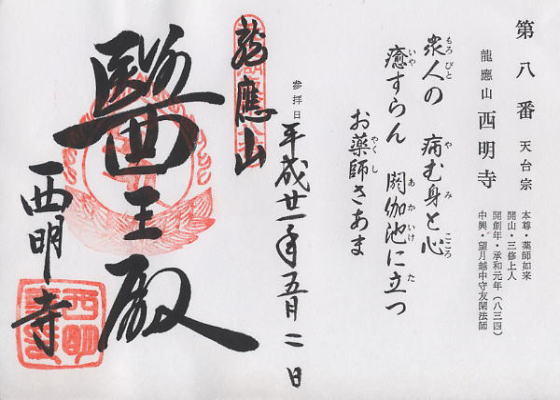 第八番 天台宗
龍應山 西明寺
本尊・薬師如来
開山・三修上人
開創年・承和元年（八三四）
中興・望月越中守友閑法師
衆人の 病む身と心
もろびと や み こころ
癒すらん 閼伽池に立つ
いや あかいけ た
お薬師さあま
やくし
参拝日 平成廿一年五月二日
龍應山
醫王殿
西明寺
西明